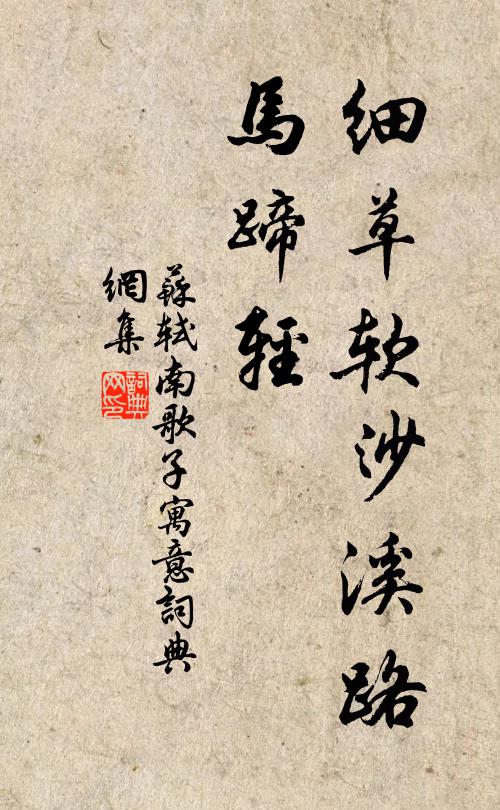 细草软沙溪路
馬蹄輕
蘇軾南歌子寓意詞典
網集
詞典
网印